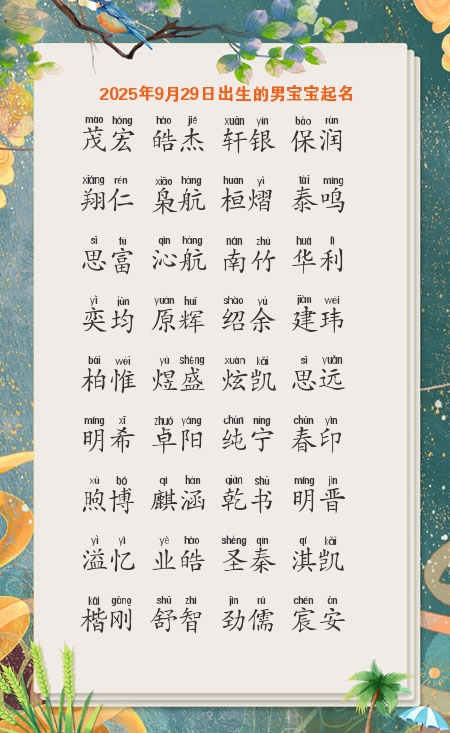 2025年9月29日出生的男宝宝起名
mào hóng hào jié xuān yín bǎo rùn
茂宏 皓杰 轩银 保润
xiáng rén xiāo háng huán yì tài míng
翔仁 枭航 桓熠 泰鸣
sī fù qìn háng nán zhú huá lì
思富 沁航 南竹 华利
yì jūn yuán huī shào yú jiàn wěi
奕均 原辉 绍余 建玮
bǎi wéi yù shèng xuàn kǎi sī yuǎn
柏惟 煜盛 炫凯 思远
míng xī zhuó yáng chún níng chūn yìn
明希 卓阳 纯宁 春印
xù bó qí hán qián shū míng jìn
煦博 麒涵 乾书 明晋
yì yì yè hào shèng qín qí kǎi
溢忆 业皓 圣秦 淇凯
kǎi gāng shū zhì jìn rú chén ān
楷刚 舒智 劲儒 宸安